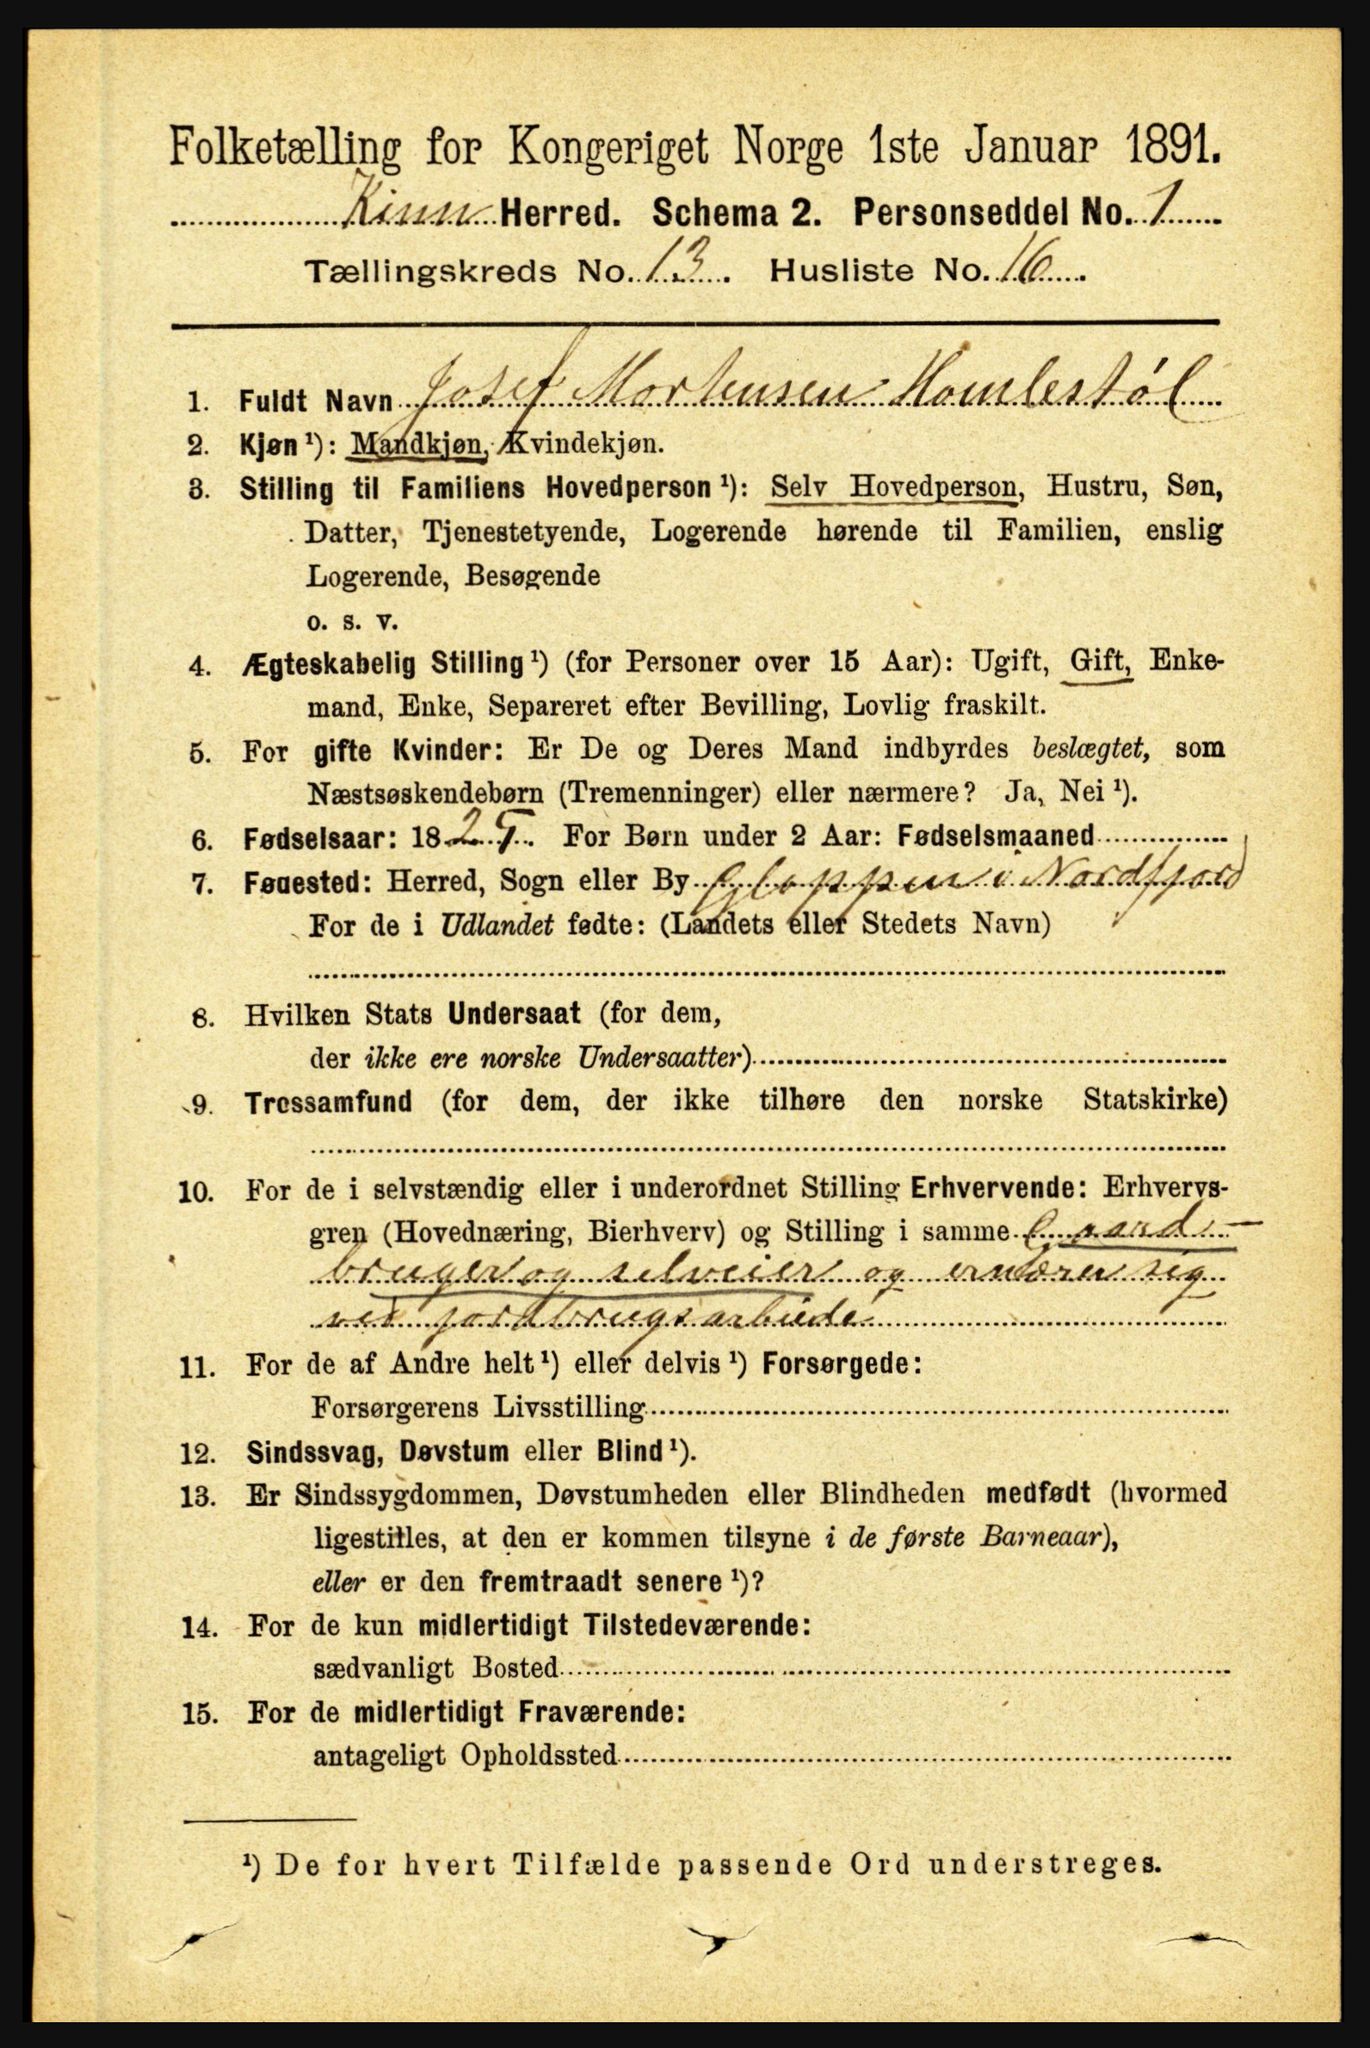 Folketælling for Kongeriget Norge 1ste Januar 1891.
Kinn Herred. Schema 2. Personseddel No. 1
Tællingskreds No. 13. Husliste No. 16
1. Fuldt Navn Josef Mortensen Homlestøl
2. Kjøn¹): Mandkjøn, Kvindekjøn.
3. Stilling til Familiens Hovedperson¹): Selv Hovedperson, Hustru, Søn,
Datter, Tjenestetyende, Logerende hørende til Familien, enslig
Logerende, Besøgende
o. s. v.
4. Ægteskabelig Stilling¹) (for Personer over 15 Aar): Ugift, Gift, Enke-
mand, Enke, Separeret efter Bevilling, Lovlig fraskilt.
5. For gifte Kvinder: Er De og Deres Mand indbyrdes beslægtet, som
Næstsøskendebørn (Tremenninger) eller nærmere? Ja, Nei¹).
6. Fødselsaar: 182. For Børn under 2 Aar: Fødselsmaaned
7. Fødested: Herred, Sogn eller By Gloppen i Nordfjord
For de i Udlandet fødte: (Landets eller Stedets Navn)
8. Hvilken Stats Undersaat (for dem,
der ikke ere norske Undersaatter)
9. Trossamfund (for dem, der ikke tilhøre den norske Statskirke)
10. For de i selvstændig eller i underordnet Stilling Erhvervende: Erhvervs-
gren (Hovednæring, Bierhverv) og Stilling i samme Gaard-
bruger og selveier og ernærer sig
ved jordbrugsarbeide
11. For de af Andre helt¹) eller delvis¹) Forsørgede:
Forsørgerens Livsstilling
12. Sindssvag, Døvstum eller Blind¹).
13. Er Sindssygdommen, Døvstumheden eller Blindheden medfødt (hvormed
ligestilles, at den er kommen tilsyne i de første Barneaar),
eller er den fremtraadt senere¹)?
14. For de kun midlertidigt Tilstedeværende:
sædvanligt Bosted
15. For de midlertidigt Fraværende:
antageligt Opholdssted
¹) De for hvert Tilfælde passende Ord understreges.